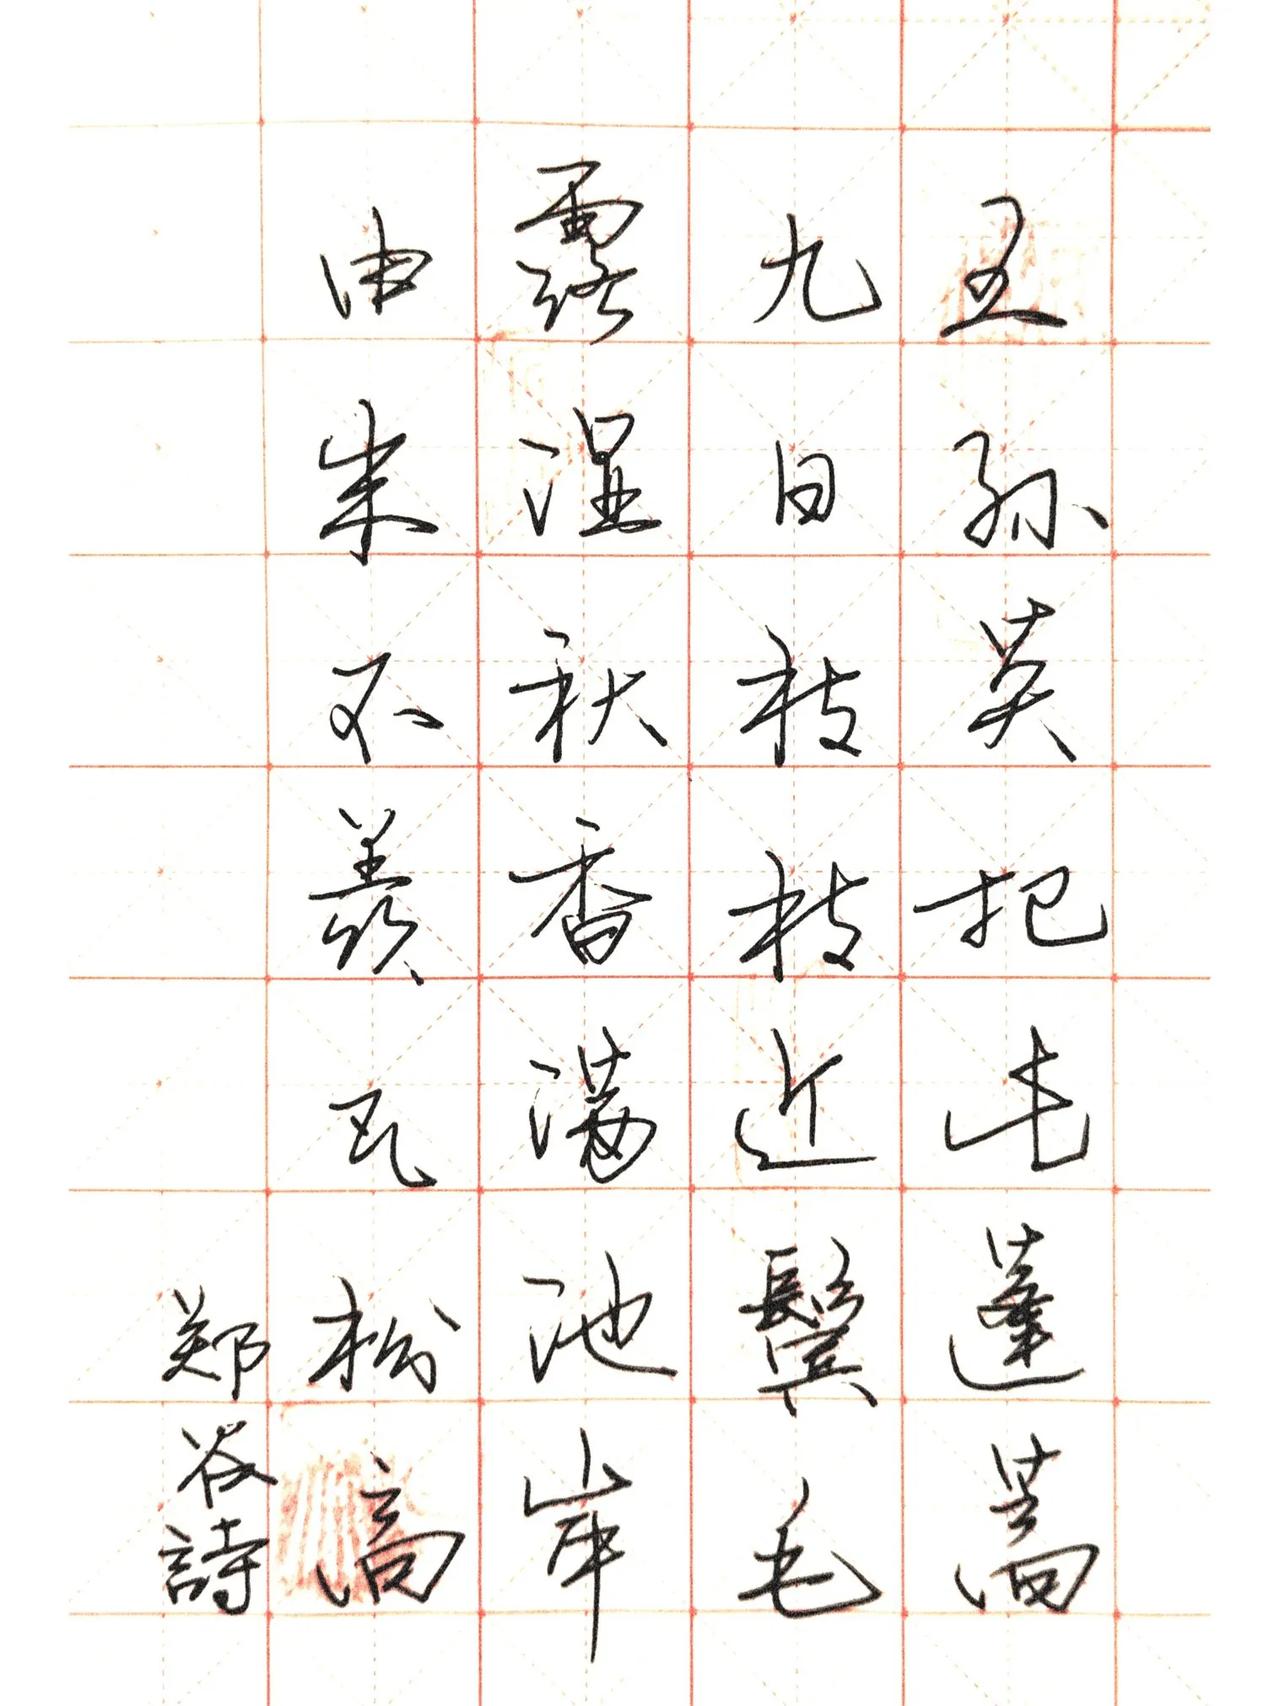 王孙莫把比蓬蒿
九日枝枝近鬓毛
露湿秋香满池岸
由来不羡瓦松高
郑谷詩